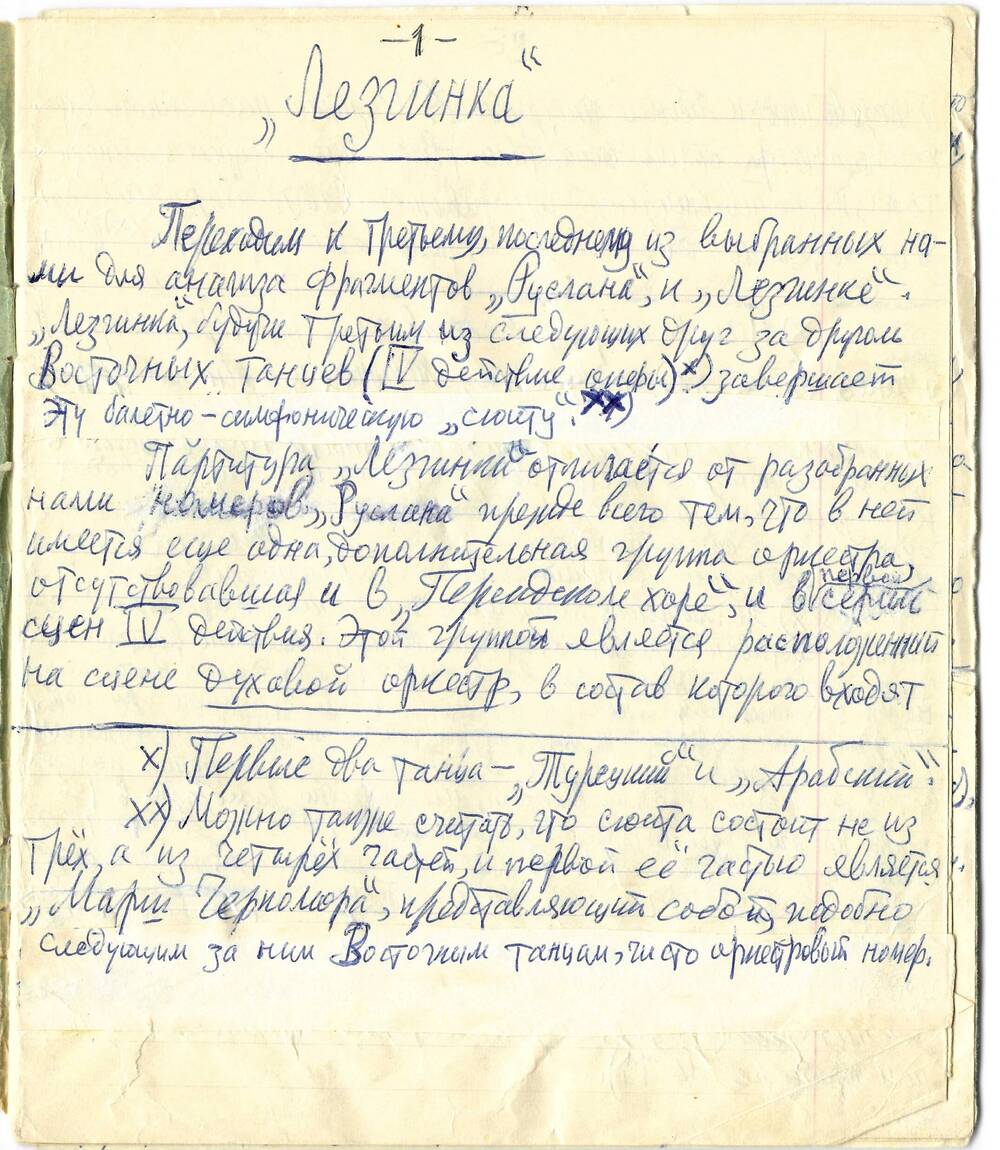 –1–
„Лезгинка“
Переходим к третьему, последнему из выбранных на-
ми для анализа фрагментов „Руслана“, и „Лезгинке“.
„Лезгинка“, будучи третьим из следующих друг за другом
Восточных танцев (IV действие оперы)х) завершает
эту балетно-симфоническую „сюиту“.хх)
Партитура „Лезгинки“ отличается от разобранных
нами номеров „Руслана“ прежде всего тем, что в ней
имеется еще одна, дополнительная группа оркестра,
отсутствовавшая и в „Персидском хоре“, и в первой серии
сцен IV действия. Этой группой является расположенный
на сцене духовой оркестр, в состав которого входят
х) Первые два танца – „Турецкий“ и „Арабский“.
хх) Можно также считать, что сюита состоит не из
трёх, а из четырёх частей, и первой её частью является
„Марш Черномора“, представляющий собой, подобно
следующим за ним Восточным танцам, чисто оркестровый номер.